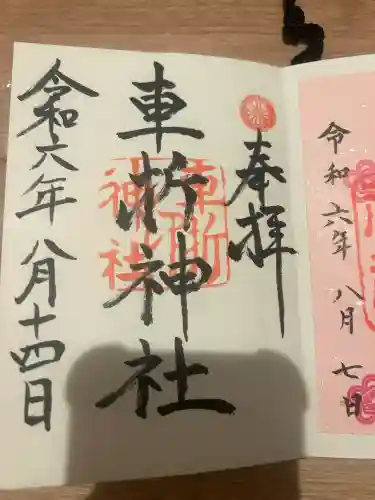 奉拝
車折神社
令和六年八月十四日
車折
神社
令和六年 八月 七日